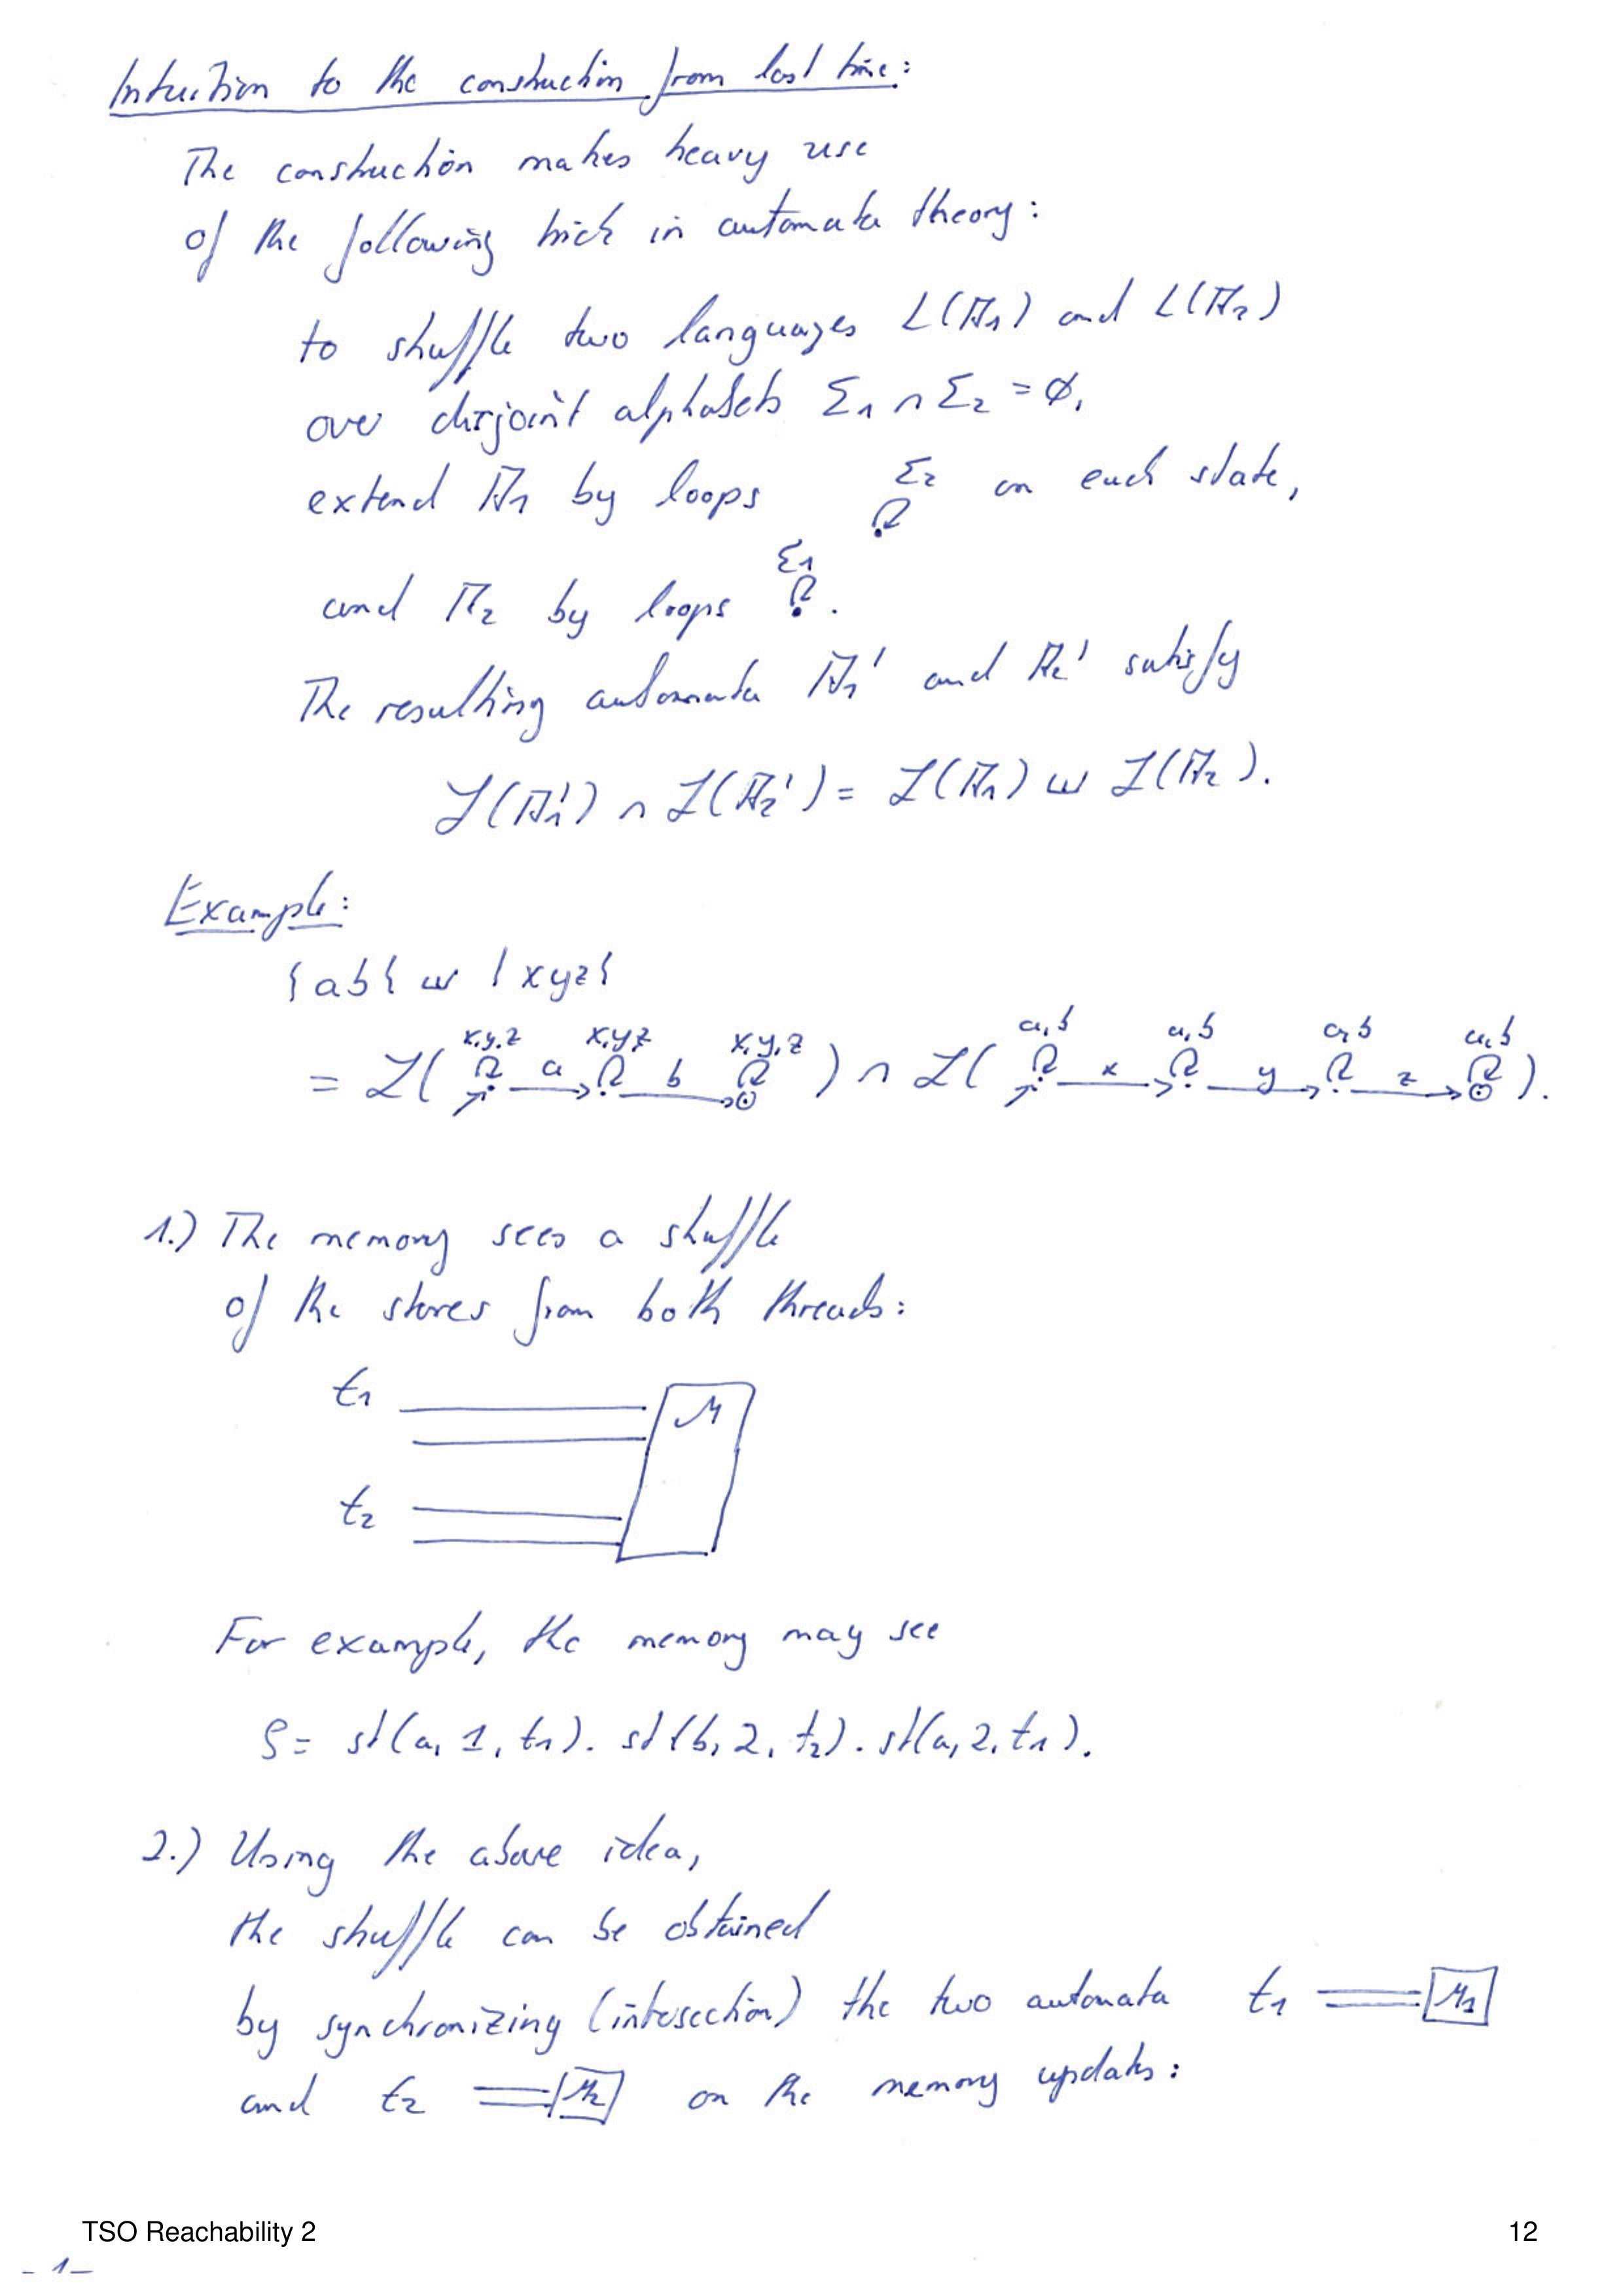 Intuition to the construction from last time:
The construction makes heavy use
of the following trick in automata theory:
to shuffle two languages L(A1) and L(A2)
over disjoint alphabets Σ1 ∩ Σ2 = ∅,
extend A1 by loops Σ2 on each state,
and A2 by loops Σ1 .
The resulting automata A1' and A2' satisfy
L(A1') ∩ L(A2') = L(A1) ш L(A2).
Example:
{ab} ш {xyz}
x,y,z x,y,z x,y,z a,b a,b a,b a,b
= L( a b ) ∩ L( x y z ).
1.) The memory sees a shuffle
of the stores from both threads:
t1 M
t2
For example, the memory may see
ρ = st(a, 1, t1). st(b, 2, t2). st(a, 2, t1).
2.) Using the above idea,
the shuffle can be obtained
by synchronizing (intersection) the two automata t1 M1
and t2 M2 on the memory updates:
TSO Reachability 2 12
- 1 -